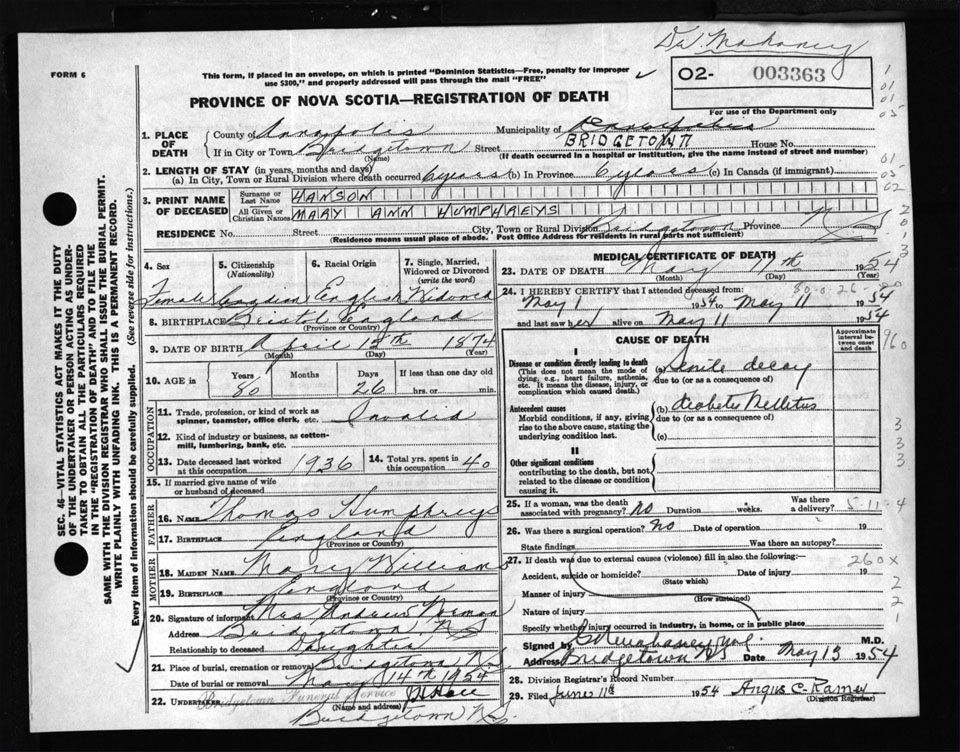 Dr. Mahaney
FORM 6
This form, if placed in an envelope, on which is printed "Dominion Statistics—Free, penalty for improper
use $300," and properly addressed will pass through the mail "FREE"
02- 003363
For use of the Department only
PROVINCE OF NOVA SCOTIA—REGISTRATION OF DEATH
1. PLACE OF DEATH County of Annapolis Municipality of Annapolis
If in City or Town Bridgetown Street BRIDGETOWN House No.
(Name) (If death occurred in a hospital or institution, give the name instead of street and number)
2. LENGTH OF STAY (in years, months and days)
(a) In City, Town or Rural Division where death occurred 6 years (b) In Province 6 years (c) In Canada (if immigrant)
3. PRINT NAME OF DECEASED Surname or Last Name HANSON
All Given or Christian Names MARY ANN HUMPHREYS
RESIDENCE No. Street City, Town or Rural Division Bridgetown Province N S
(Residence means usual place of abode. Post Office Address for residents in rural parts not sufficient)
4. Sex Female
5. Citizenship (Nationality) Canadian
6. Racial Origin English
7. Single, Married, Widowed or Divorced (write the word) Widowed
8. BIRTHPLACE Bristol England
(Province or Country)
9. DATE OF BIRTH April 15th 1874
(Month) (Day) (Year)
10. AGE in Years 80 Months Days 26 If less than one day old hrs. or min.
OCCUPATION
11. Trade, profession, or kind of work as spinner, teamster, office clerk, etc. Invalid
12. Kind of industry or business, as cotton-mill, lumbering, bank, etc.
13. Date deceased last worked at this occupation 1936
14. Total yrs. spent in this occupation 40
15. If married give name of wife or husband of deceased
FATHER
16. NAME Thomas Humphreys
17. BIRTHPLACE England
(Province or Country)
MOTHER
18. MAIDEN NAME Mary Williams
19. BIRTHPLACE England
(Province or Country)
20. Signature of informant Mrs Andrew Norman
Address Bridgetown NS
Relationship to deceased Daughter
21. Place of burial, cremation or removal Bridgetown N.S.
Date of burial or removal May 14th 1954
22. UNDERTAKER Bridgetown Funeral Service
(Name and address)
Bridgetown N.S.
MEDICAL CERTIFICATE OF DEATH
23. DATE OF DEATH May 11th 1954
(Month) (Day)
80-0-26-
24. I HEREBY CERTIFY that I attended deceased from:
May 1 1954 to May 11 1954
and last saw her alive on May 11 1954
CAUSE OF DEATH
Approximate interval between onset and death
I
Disease or condition directly leading to death
(This does not mean the mode of dying, e.g., heart failure, asthenia, etc. It means the disease, injury, or complication which caused death.)
(a) Senile decay
due to (or as a consequence of)
Antecedent causes
Morbid conditions, if any, giving rise to the above cause, stating the underlying condition last.
(b) diabetes Mellitus
due to (or as a consequence of)
(c)
II
Other significant conditions
contributing to the death, but not related to the disease or condition causing it.
25. If a woman, was the death associated with pregnancy? no Duration weeks. Was there a delivery?
5-11-4
26. Was there a surgical operation? no Date of operation 19
State findings Was there an autopsy?
27. If death was due to external causes (violence) fill in also the following:—
260x
Accident, suicide or homicide? Date of injury 19
(State which)
Manner of injury
(How sustained)
Nature of injury
Specify whether injury occurred in industry, in home, or in public place
Signed by M.D.
Address Bridgetown NS Date May 13 1954
28. Division Registrar's Record Number
29. Filed June 11th 1954 Angus C. Ramey
(Division Registrar)
SEC. 46—VITAL STATISTICS ACT MAKES IT THE DUTY
OF THE UNDERTAKER OR PERSON ACTING AS UNDER-
TAKER TO OBTAIN ALL THE PARTICULARS REQUIRED
IN THE "REGISTRATION OF DEATH" AND TO FILE THE
SAME WITH THE DIVISION REGISTRAR WHO SHALL ISSUE THE BURIAL PERMIT.
WRITE PLAINLY WITH UNFADING INK. THIS IS A PERMANENT RECORD.
Every item of information should be carefully supplied. (See reverse side for instructions.)